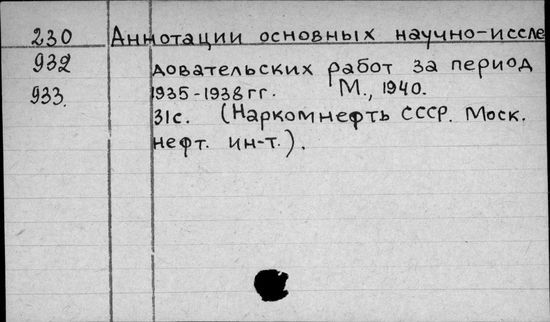 230 Аннотации основных научно-иссле
932 довательских работ за период
933. 1935-1938 гг. М., 1940.
31с. (Наркомнефть СССР. Моск.
нефт. ин-т.).